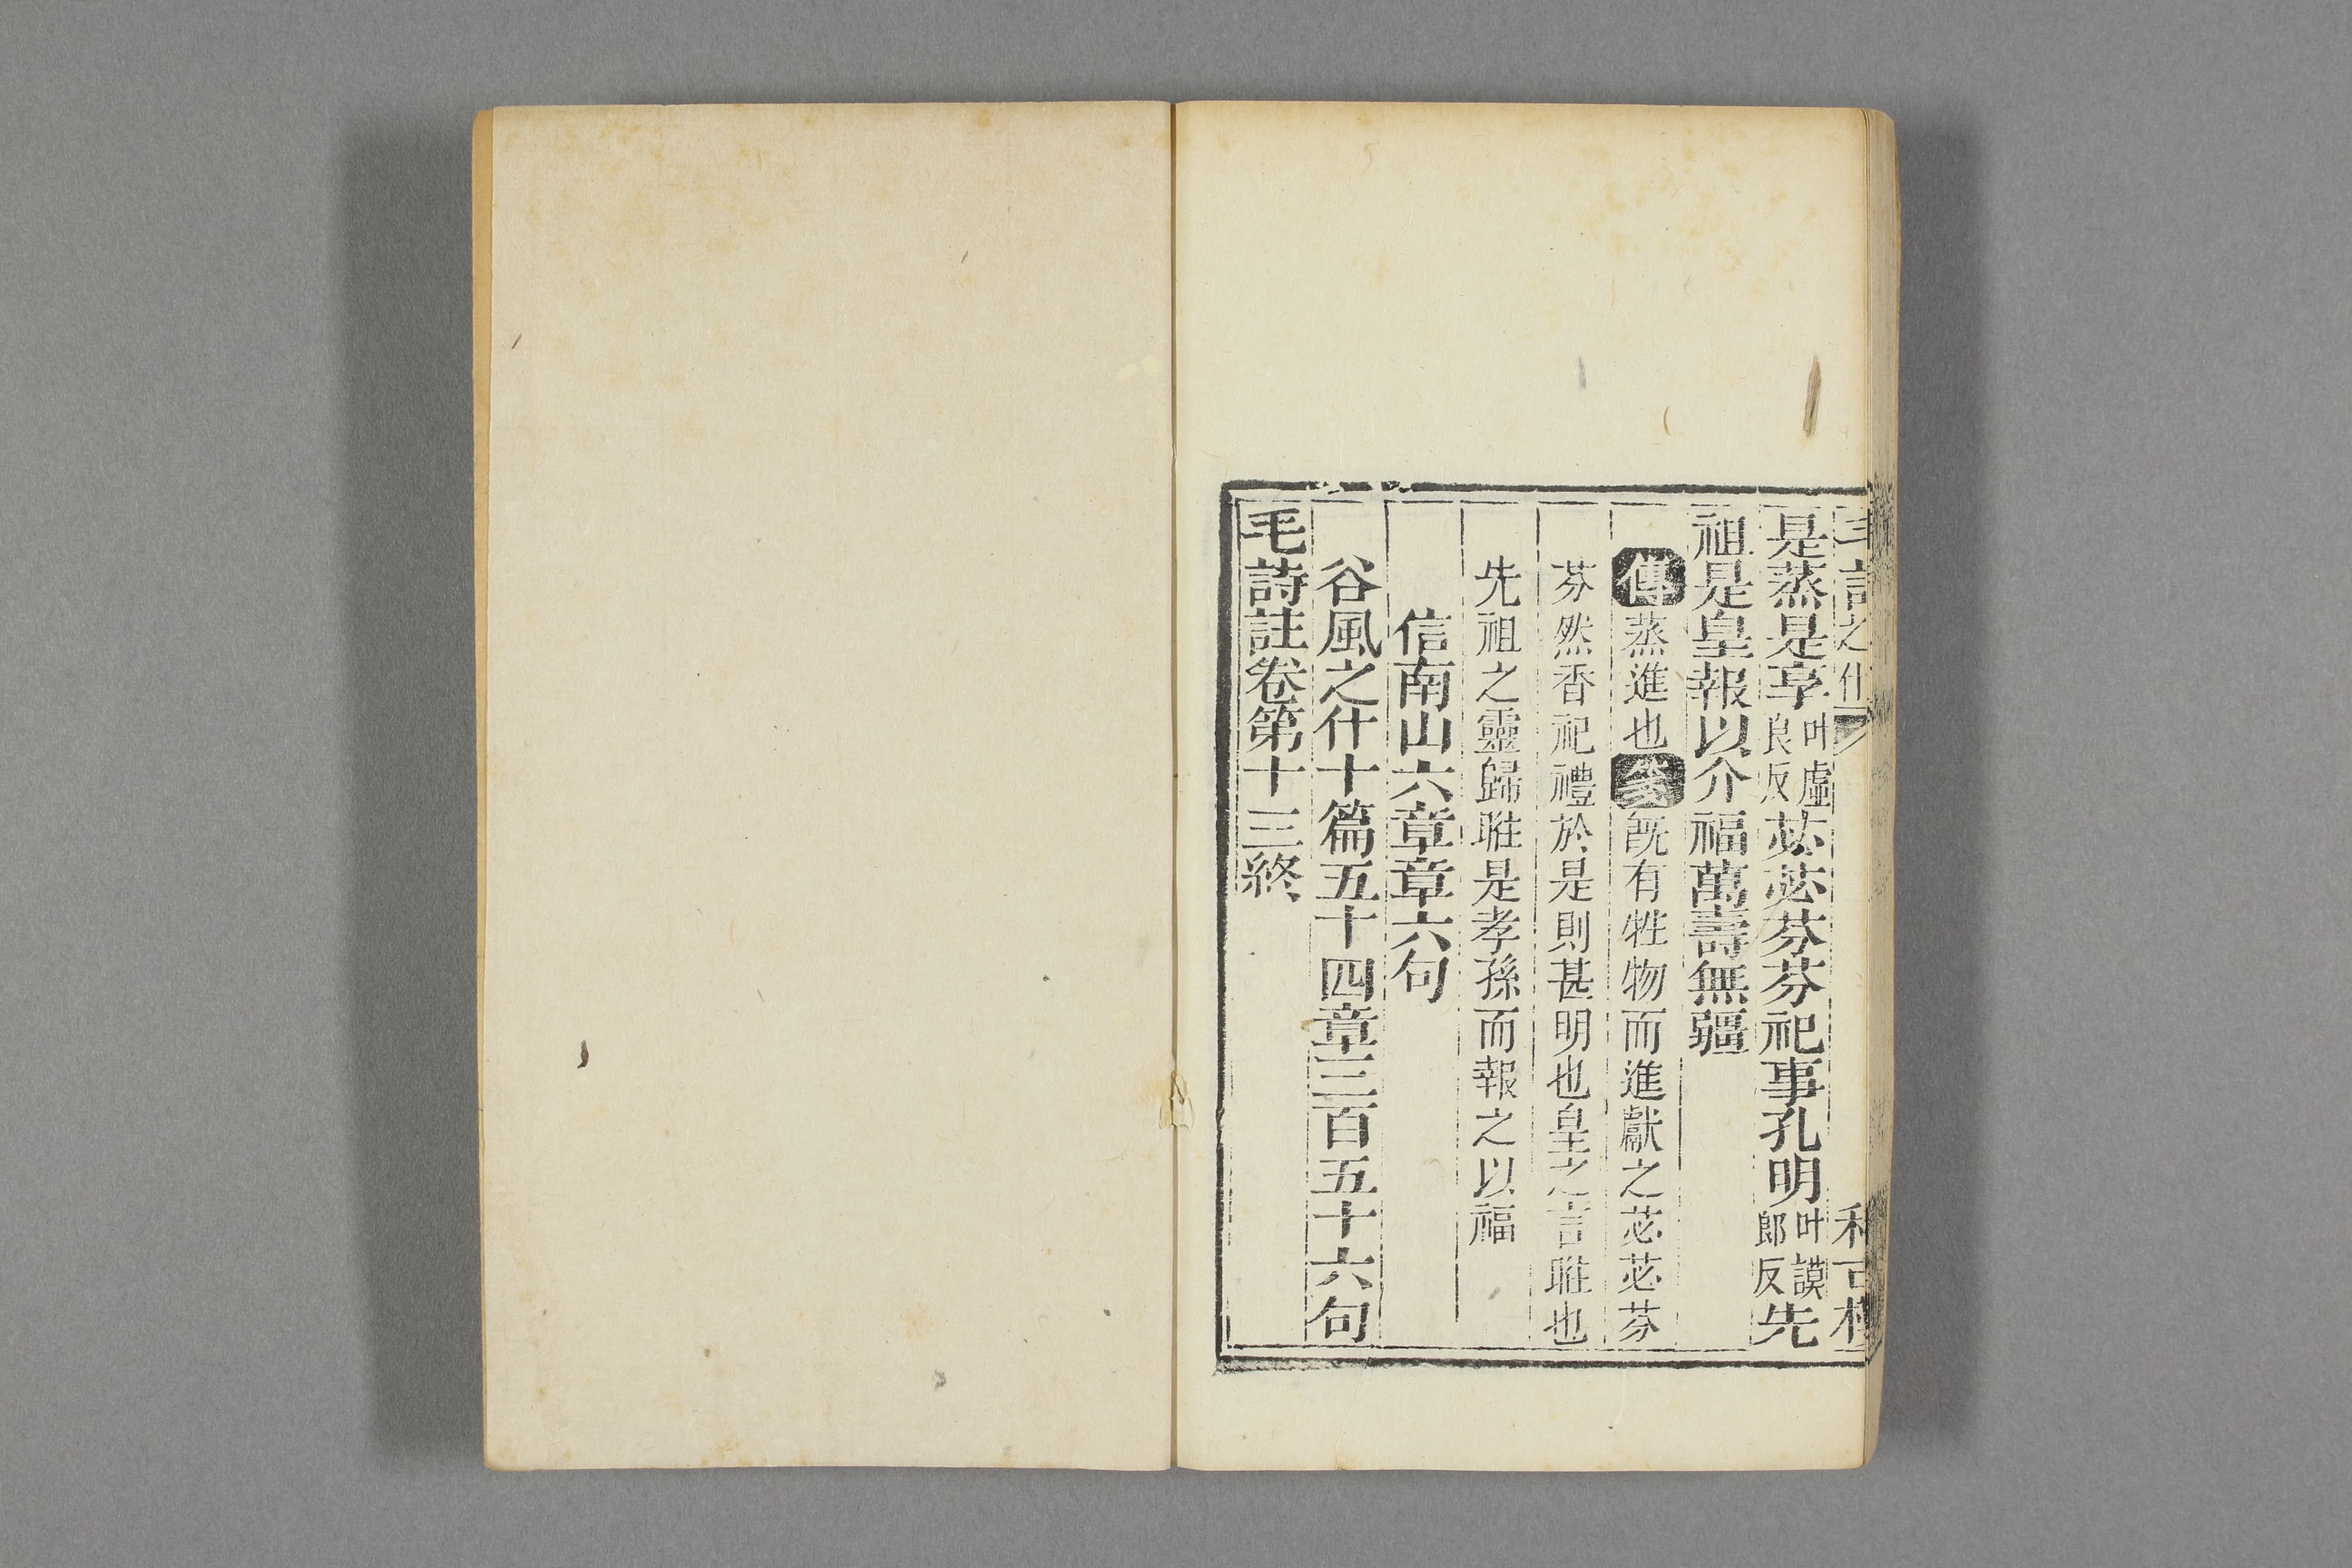 是蒸是享叶虛良反苾苾芬芬祀事孔明叶謨郎反先
祖是皇報以介福萬壽無疆
傳蒸進也箋既有牲物而進獻之苾苾芬
芬然香祀禮於是則甚明也皇之言暀也
先祖之靈歸暀是孝孫而報之以福
信南山六章章六句
谷風之什十篇五十四章三百五十六句
毛詩註卷第十三終